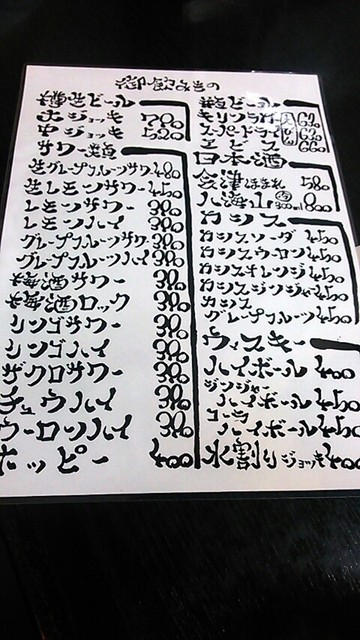 御飲みもの
樽生ビール
大ジョッキ 780
中ジョッキ 520
サワー類
生グレープフルーツサワー 480
生レモンサワー 450
レモンサワー 380
レモンハイ 380
グレープフルーツサワー 380
グレープフルーツハイ 380
梅酒サワー 380
梅酒ロック 380
リンゴサワー 380
リンゴハイ 380
ザクロサワー 380
チュウハイ 380
ウーロンハイ 380
ホッピー 400
瓶ビール
キリンラガー 620
スーパードライ 620
エビス 660
日本酒
会津ほまれ 580
八海山 800
カシス
カシスソーダ 450
カシスウーロン 450
カシスオレンジ 450
カシス
グレープフルーツ 450
ウィスキー
ハイボール 400
ジンジャー
ハイボール 450
コーラ
ハイボール 450
水割りジョッキ 400